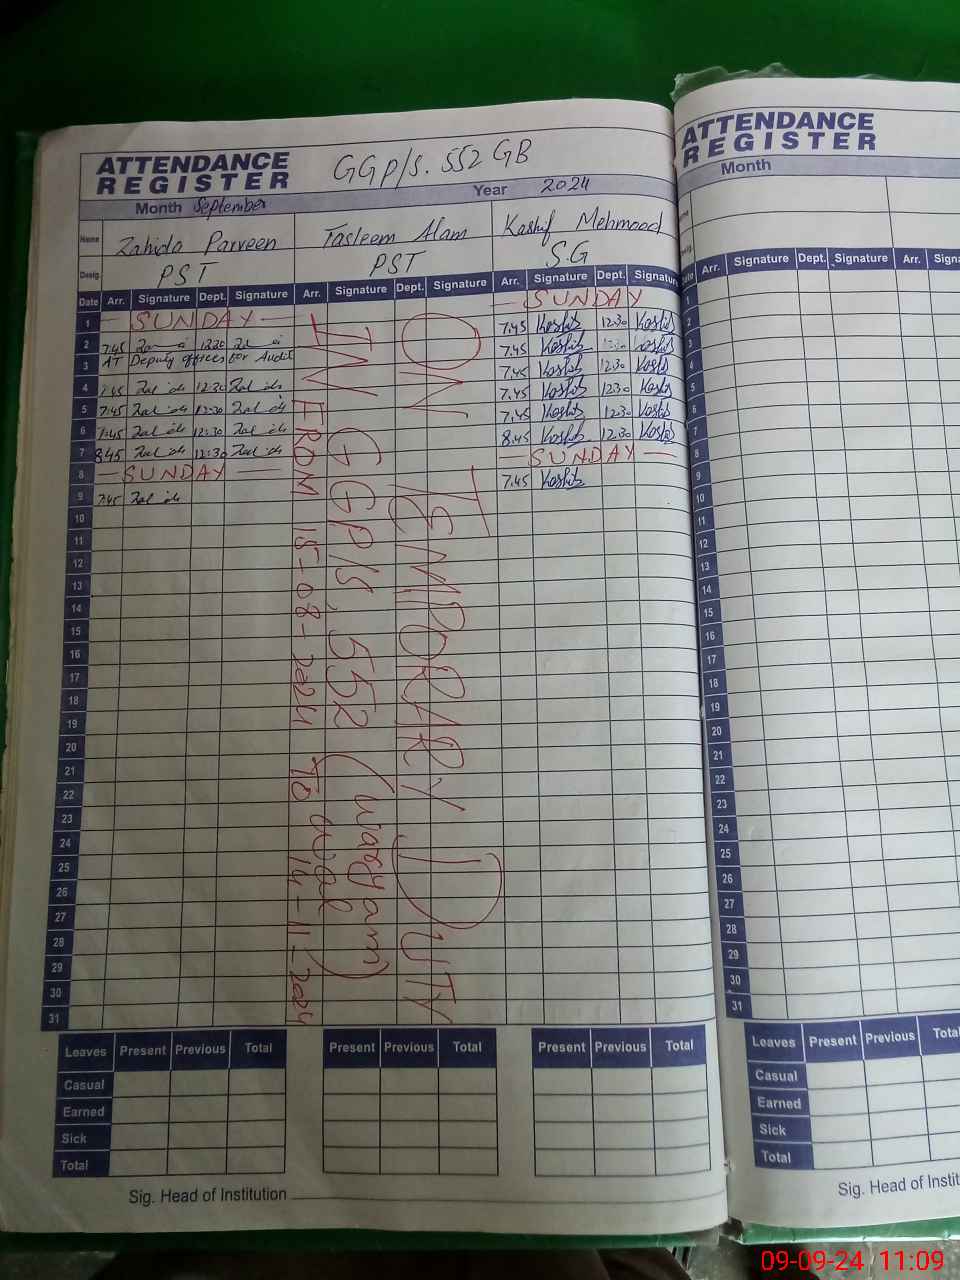 ATTENDANCE REGISTER GGP/S. 552 GB
Month September Year 2024
Name Zahida Parveen Tasleem Alam Kashif Mehmood
Desig. PST PST S.G
Date Arr. Signature Dept. Signature Arr. Signature Dept. Signature Arr. Signature Dept. Signature
1 — SUNDAY — — SUNDAY
2 7.45 12.30 7.45 Kashif 12.30 Kashif
3 AT Deputy offices for Audit 7.45 Kashif 12.30 Kashif
4 7.45 Zahida 12.30 Zahida 7.45 Kashif 12.30 Kashif
5 7.45 Zahida 12.30 Zahida 7.45 Kashif 12.30 Kashif
6 7.45 Zahida 12.30 Zahida 7.45 Kashif 12.30 Kashif
7 8.45 Zahida 12.30 Zahida 8.45 Kashif 12.30 Kashif
8 — SUNDAY — — SUNDAY —
9 7.45 Zahida 7.45 Kashif
10
11
12
13
14
15
16
17
18
19
20
21
22
23
24
25
26
27
28
29
30
31
ON TEMPORARY DUTY
IN GGP/S, 552 (waryam wal)
FROM 15-08-2024 TO 14-11-2024
Leaves Present Previous Total Present Previous Total Present Previous Total
Casual
Earned
Sick
Total
Sig. Head of Institution
ATTENDANCE REGISTER
Month
Date Arr. Signature Dept. Signature Arr.
1
2
3
4
5
6
7
8
9
10
11
12
13
14
15
16
17
18
19
20
21
22
23
24
25
26
27
28
29
30
31
Leaves Present Previous
Casual
Earned
Sick
Total
Sig. Head of
09-09-24 11:09